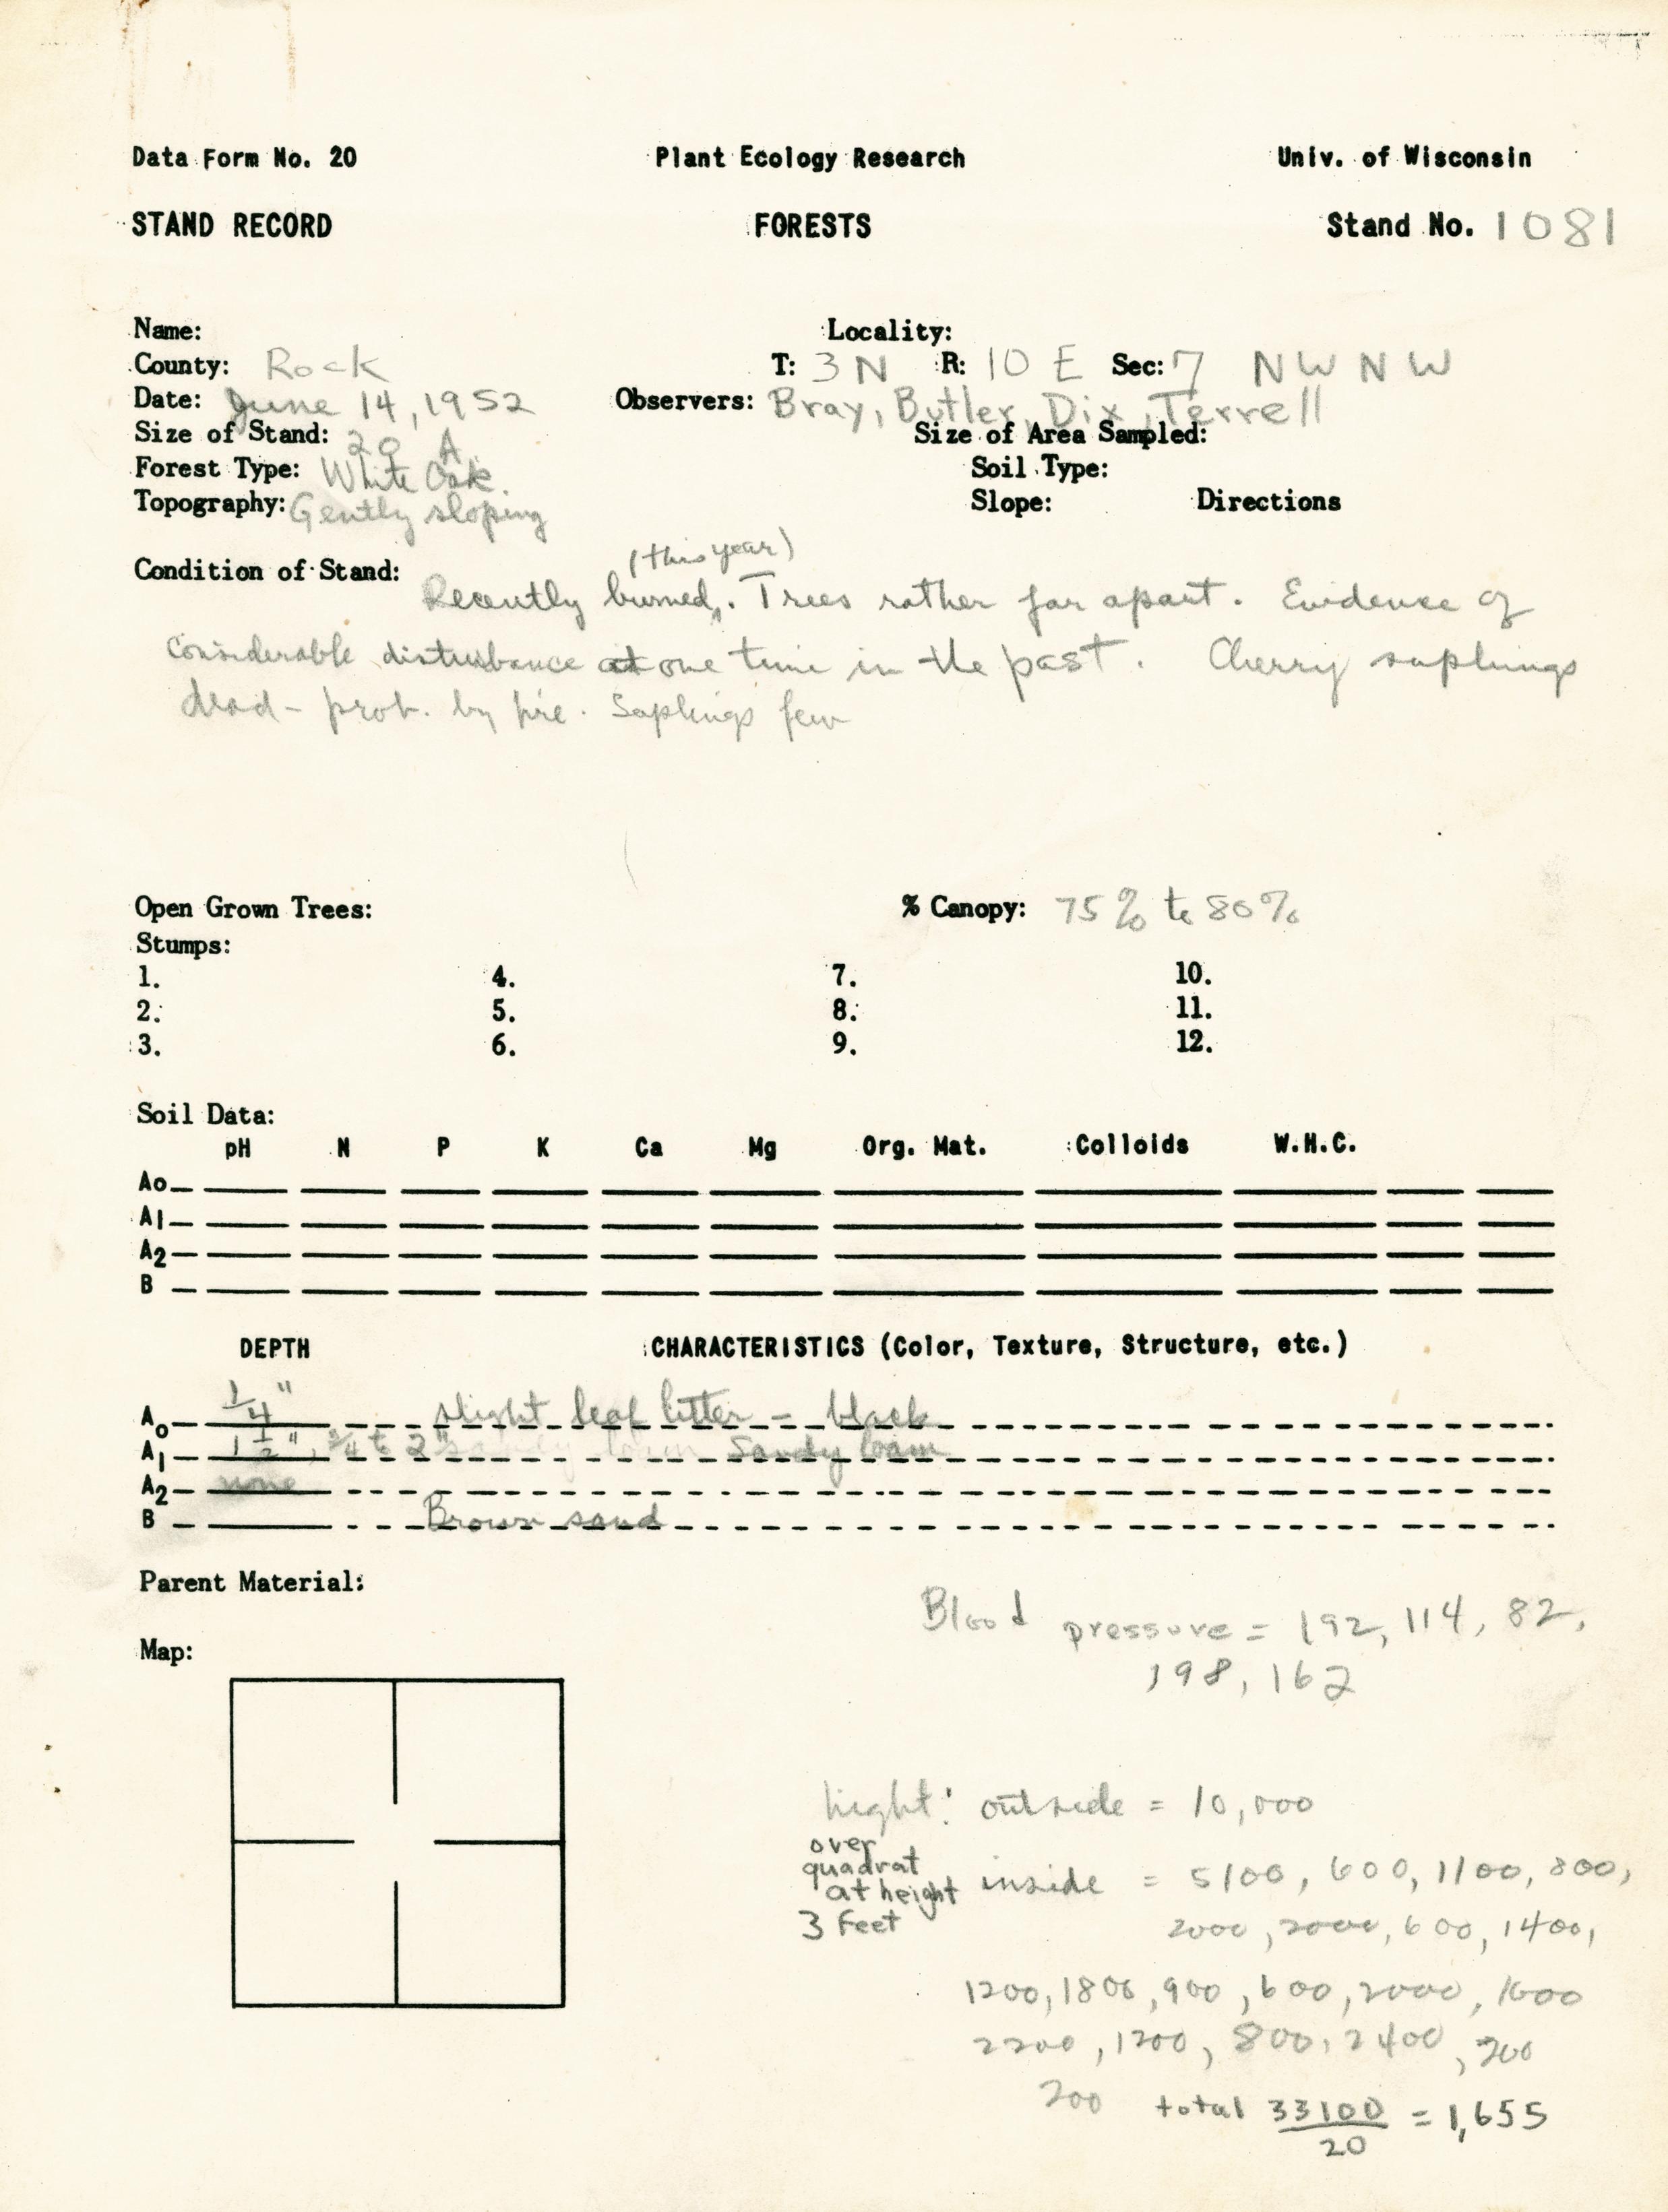 Data Form No. 20 Plant Ecology Research Univ. of Wisconsin
STAND RECORD FORESTS Stand No. 1081
Name: Locality:
County: Rock T: 3 N R: 10 E Sec: 7 NW NW
Date: June 14, 1952 Observers: Bray, Butler, Dix, Terrell
Size of Stand: 20 A Size of Area Sampled:
Forest Type: White Oak. Soil Type:
Topography: Gently sloping Slope: Directions
(this year)
Condition of Stand: Recently burned. Trees rather far apart. Evidence of
considerable disturbance at one time in the past. Cherry saplings
dead - prob. by fire. Saplings few
Open Grown Trees: % Canopy: 75% to 80%
Stumps:
1. 4. 7. 10.
2. 5. 8. 11.
3. 6. 9. 12.
Soil Data:
pH N P K Ca Mg Org. Mat. Colloids W.H.C.
Ao
A1
A2
B
DEPTH CHARACTERISTICS (Color, Texture, Structure, etc.)
Ao 1/4" slight leaf litter - black
A1 1 1/2", 3/4 to 2" sandy loam Sandy loam
A2 none
B Brown sand
Parent Material:
Blood pressure = 192, 114, 82,
198, 162
Map:
light: outside = 10,000
over
quadrat
at height inside = 5100, 600, 1100, 800,
3 Feet
2000, 2000, 600, 1400,
1200, 1800, 900, 600, 2000, 1600
2200, 1200, 800, 2400, 200
200 total 33100/20 = 1,655